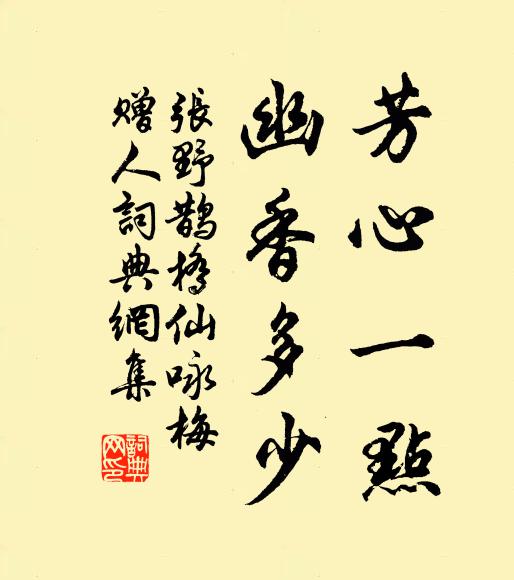 芳心一點
幽香多少
張野鵲橋仙咏梅
贈人詞典網集
詞典
网印